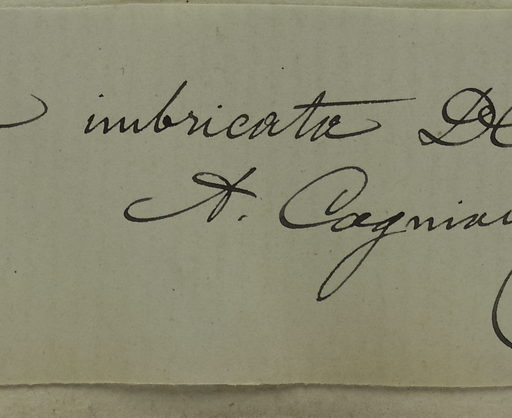 imbricata DC
A. Cagnia